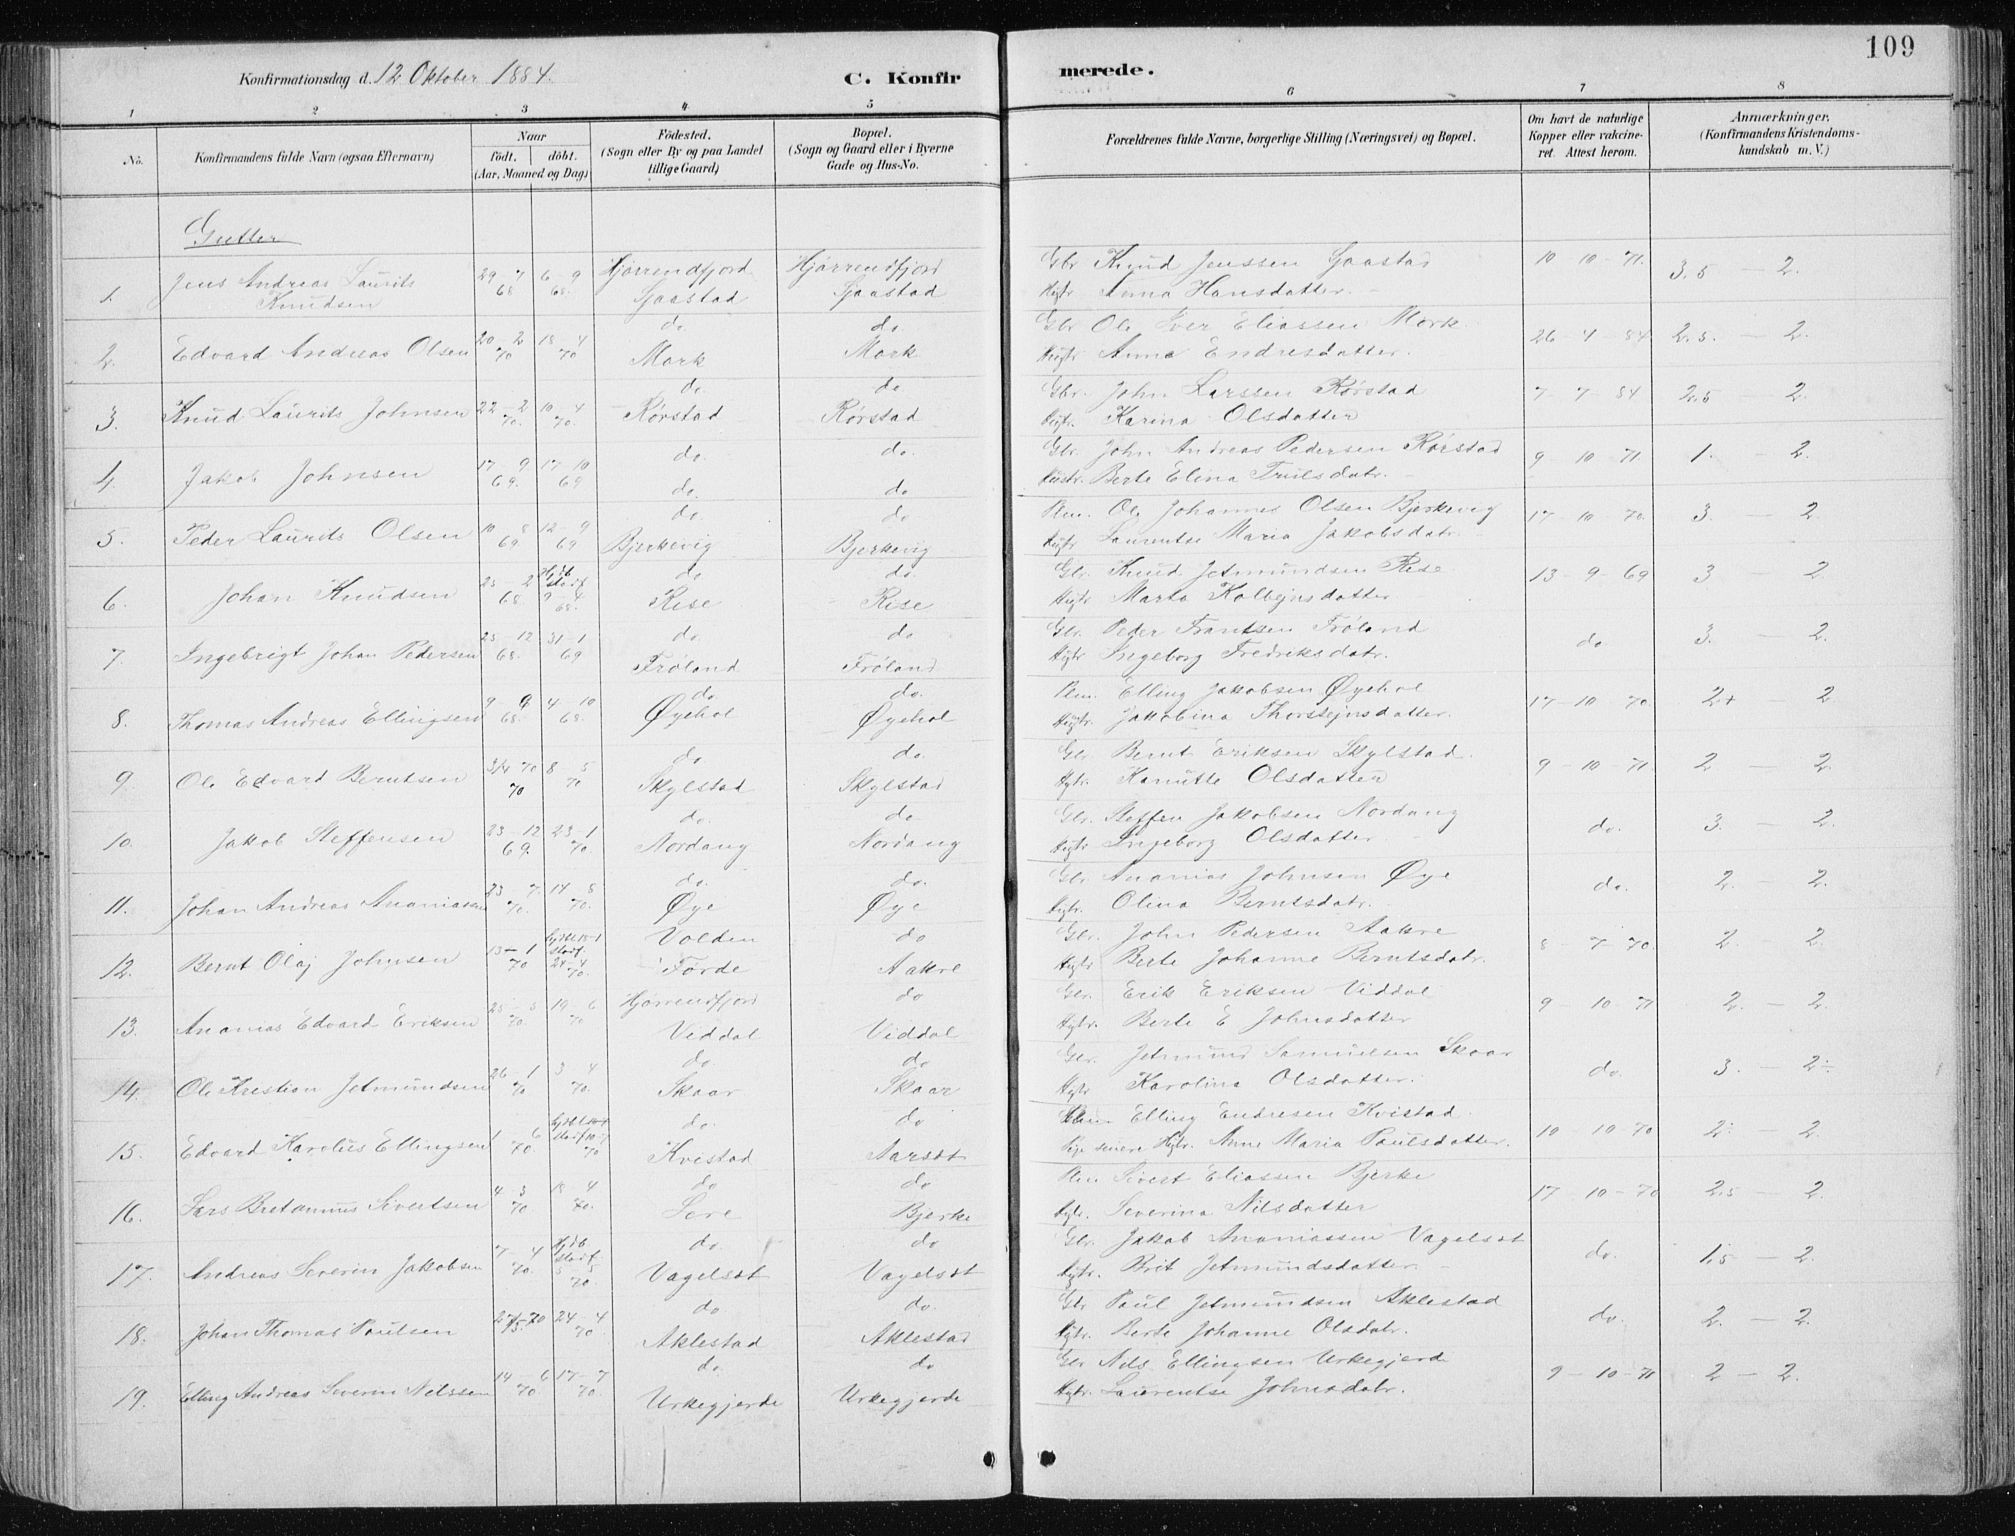 109
Konfirmationsdag d. 12 Oktober 1884.
C. Konfirmerede.
1 2 3 4 5 6 7 8
No. Konfirmandens fulde Navn (ogsaa Efternavn) Naar födt. döbt. (Aar, Maaned og Dag) Födested. (Sogn eller By og paa Landet tillige Gaard) Bopæl. (Sogn og Gaard eller i Byerne Gade og Hus-No. Forældrenes fulde Navne, borgerlige Stilling (Næringsvei) og Bopæl. Om havt de naturlige Kopper eller vakcineret. Attest herom. Anmærkninger. (Konfirmandens Kristendomskundskab m. V.)
Gutter
1. Jens Andreas Laurits Knudsen 29-7 68 6-9 68. Hjørrendfjord Sjaastad Hjørrendfjord Sjaastad Gbr Knud Jenssen Sjaastad Hgtr Anna Hansdatter. 10-10-71. 3.5 - 2.
2. Edvard Andreas Olsen 20-2 70 18-4 70 do Mork do. Mork Gbr Ole Iver Eliassen Mork. Hgtr Anna Endresdatter. 26-4-84 2.5. - 2.
3. Knud Laurits Johnsen 22-2 70. 10-4 70. do Rörstad do Rörstad Gbr. John Larssen Rörstad Hgtr. Karina Olsdatter 7-7-84 2.5 - 2.
4. Jakob Johnsen 17-9 69. 17-10 69 do. do. do. do Gbr. John Andreas Pedersen Rörstad Hustr. Berte Elina Truilsdatr. 9-10-71. 1. - 2.
5. Peder Laurits Olsen 10-8 69 12-9 69 do Bjerkevig do Bjerkevig Plm. Ole Johannes Olsen Bjerkevig Hgtr Laurentse Maria Jakobsdatr. 17-10-70. 3. - 2.
6. Johan Knudsen 25-2 68. Hjdb stadf 9-4 68. do Rise do. Rise Gbr. Knud Jetmundsen Rise Hgtr Marta Kolbejnsdatter 13-9-69 3 - 2
7. Ingebrigt Johan Pedersen 23-12 68. 31-1 69 do Fröland do Fröland Gbr. Peder Frantsen Fröland Hgtr Ingeborg Fredriksdatr. do 3. - 2.
8. Thomas Andreas Ellingsen 9-9 68. 4-10 68. do Øyehol do. Øyehol Plm. Elling Jakobsen Øyehol Hgtr. Jakobina Thorstejnsdatter. 17-10-70. 2+ 2.
9. Ole Edvard Berntsen 3/4 70 70 8-5 70 do Skylstad do Skylstad Gbr. Bernt Eriksen Skylstad. Hgtr. Kanutte Olsdatter 9-10-71. 2 - 2.
10. Jakob Steffensen 23-12 69. 23-1 70. do. Nordang do Nordang Gbr. Steffen Jakobsen Nordang Hgtr Ingeborg Olsdatter do. 3. - 2.
11. Johan Andreas Ananiassen 23-7 70. 14-8 70. do. Øye do. Øye Gbr. Ananias Johnsen Øye Hgtr. Olina Berntsdatr. do. 2. - 2.
12. Bernt Olaj Johnsen 13-1 70 stadf. 24-4 70. Volden Förde do Aakre Gbr. John Pedersen Aakre Hgtr Berte Johanne Berntsdatr. 8-7-70. 2. - 2.
13. Ananias Edvard Eriksen 25-5 70. 19-6 70 Hjørrendfjord Viddal do Viddal Gbr. Erik Eriksen Viddal Hgtr. Berte E Johnsdatter 9-10-71 2. - 2.
14. Ole Kristian Jetmundsen 26-1 70 3-4 70. do Skaar do Skaar Gbr. Jetmund Samuelsen Skaar Hgtr Karolina Olsdatter. do. 3. - 2÷
15. Edvard Karolius Ellingsen 1-6 70. 70 do. Kvistad do Aarsæt Elling Endresen Kvistad. Hgtr. Anne Maria Paulsdatter. 10-10-70 2. - 2.
16. Lars Bretanmus Sivertsen 4-3 70. 18-4 70. do Lere do Bjerke Plm Sivert Eliassen Bjerke Hgtr. Severina Nilsdatter 17-10-70 2.5 - 2.
17. Andreas Severin Jakobsen 7-4 70. Hjdb stadf 70. do. Vagelsæt do Vagelsæt Gbr. Jakob Ananiassen Vagelsæt Hgtr. Brit Jetmundsdatter. do. 1.5 - 2.
18. Johan Thomas Paulsen 24-4 70. do Aklestad do. Aklestad Gbr Paul Jetmundsen Aklestad Hgtr. Berte Johanne Olsdatr. do. 2. - 2.
19. Elling Andreas Severin Nilssen 14-6 70 17-7 70. do Urkegjerde do Urkegjerde Gbr Nils Ellingsen Urkegjerde Hgtr. Laurentse Johnsdatr. 9-10-71 2 - 2.